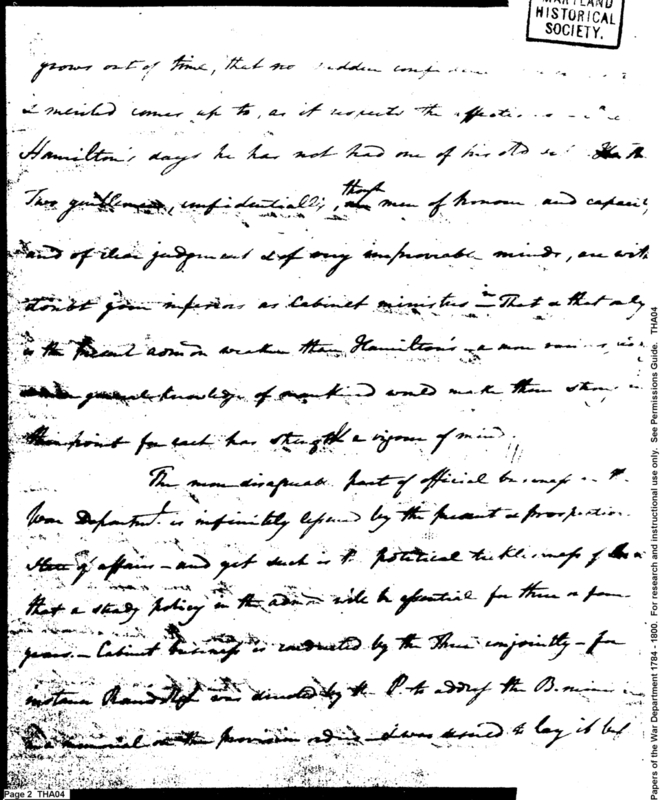 MARYLAND
HISTORICAL
SOCIETY.
grows out of time, that no sudden confidence
& merited comes up to, as it respects the affections
Hamilton's days he has not had one of his old
Two gentlemen, confidentially, tho' men of honour and capacity,
and of clear judgment & of very improvable minds, are with
doubt your inferiors as Cabinet ministers – in That & that only
is the present admon weaker than Hamilton's – a more
general knowledge of mankind would make them strong in
point for each has strength & vigour of mind
The more disagreeable part of official business in
War Departmt. is infinitely lessened by the present & prospective
State of affairs – and yet such is P. political ticklishness of
that a steady policy in the admon will be essential for three or four
years. – Cabinet business is conducted by the Three conjointly – for
instance Randolph was directed by the P. to address the B. minis
memorial on the provision order – I was desired to lay it bef
Page 2 THA04
Papers of the War Department 1784 - 1800. For research and instructional use only. See Permissions Guide. THA04